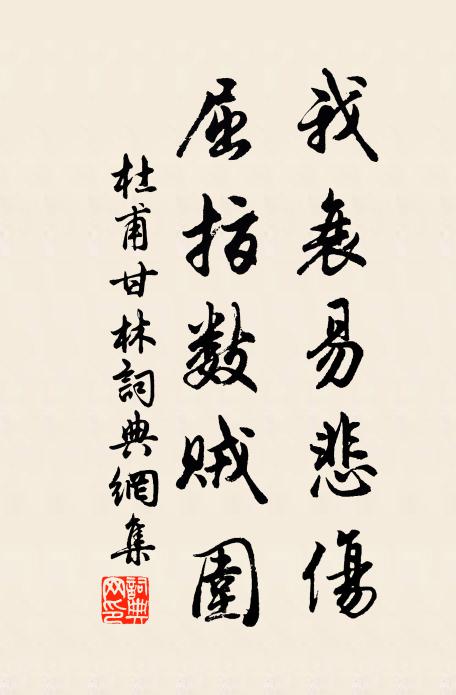 我衰易悲傷
屈指數賊圍
杜甫甘林詞典網集
詞典網印